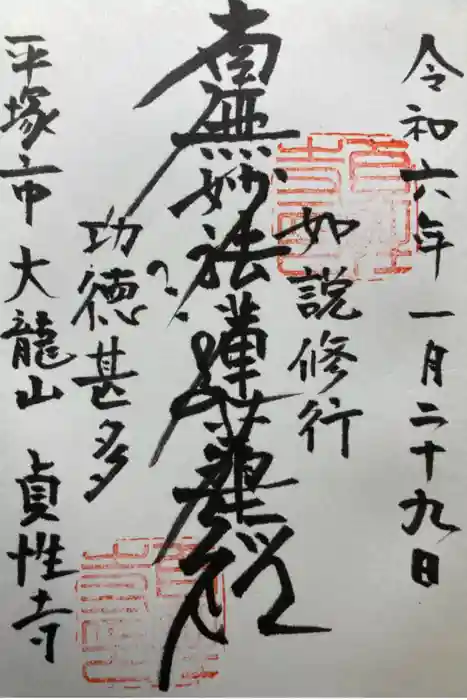 令和六年一月二十九日
如説修行
南無妙法蓮華経
功徳甚多
平塚市 大龍山 貞性寺